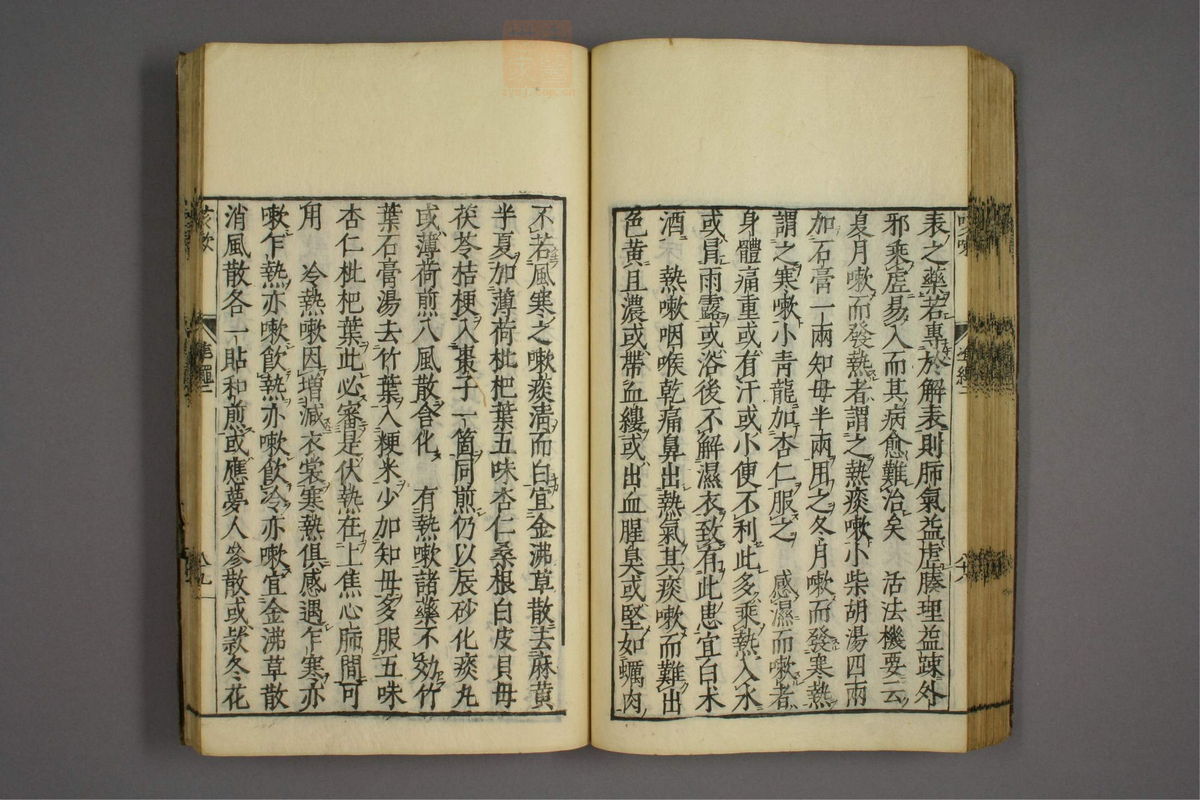 表之藥若專於解表則肺氣益虛腠理益疎外
邪乘虛易入而其病愈難治矣　活法機要云
夏月嗽而發熱者謂之熱痰嗽小柴胡湯四兩
加石膏一兩知母半兩用之冬月嗽而發寒熱
謂之寒嗽小青龍加杏仁服之　感濕而嗽者
身體痛重或有汗或小便不利此多乘熱入水
或冐雨露或浴後不解濕衣致有此患宜白术
酒　熱嗽咽喉乾痛鼻出熱氣其痰嗽而難出
色黃且濃或帶血縷或出血腥臭或堅如蠣肉
不若風寒之嗽痰淸而白宜金沸草散去麻黃
半夏加薄荷枇杷葉五味杏仁桑根白皮貝母
茯苓桔梗入棗子一箇同煎仍以辰砂化痰丸
或薄荷煎八風散含化　有熱嗽諸藥不効竹
葉石膏湯去竹葉入粳米少加知母多服五味
杏仁枇杷葉此必審是伏熱在上焦心肺間可
用　冷熱嗽因增減衣裳寒熱俱感遇乍寒亦
嗽乍熱亦嗽飲熱亦嗽飲冷亦嗽宜金沸草散
消風散各一貼和煎或應夢人參散或款冬花
咳嗽